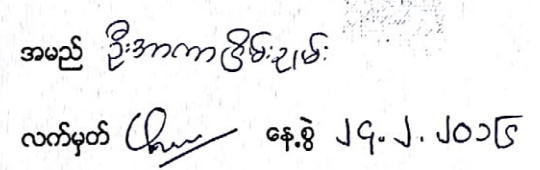 အမည် ဦးအာကာငြိမ်းချမ်း
လက်မှတ် နေ့စွဲ ၂၄.၂.၂၀၁၆